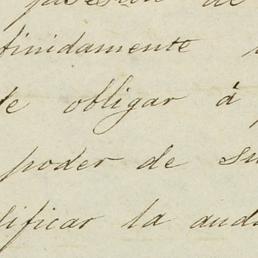 finidamente
te obligar à
poder de su
lificar la aud